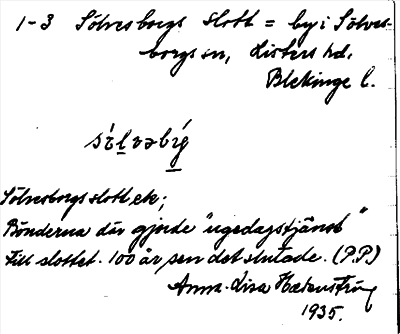 1-3 Sölvesborgs slott = by i Sölves-
borgs sn, Listers hd,
Blekinge l.
sö́lvəbrǵ
Sölvesborgs slott, ek;
Bönderna där gjorde "ugedagstjänst"
till slottet. 100 år sen det slutade. (P.P.)
Anna-Lisa
1935.